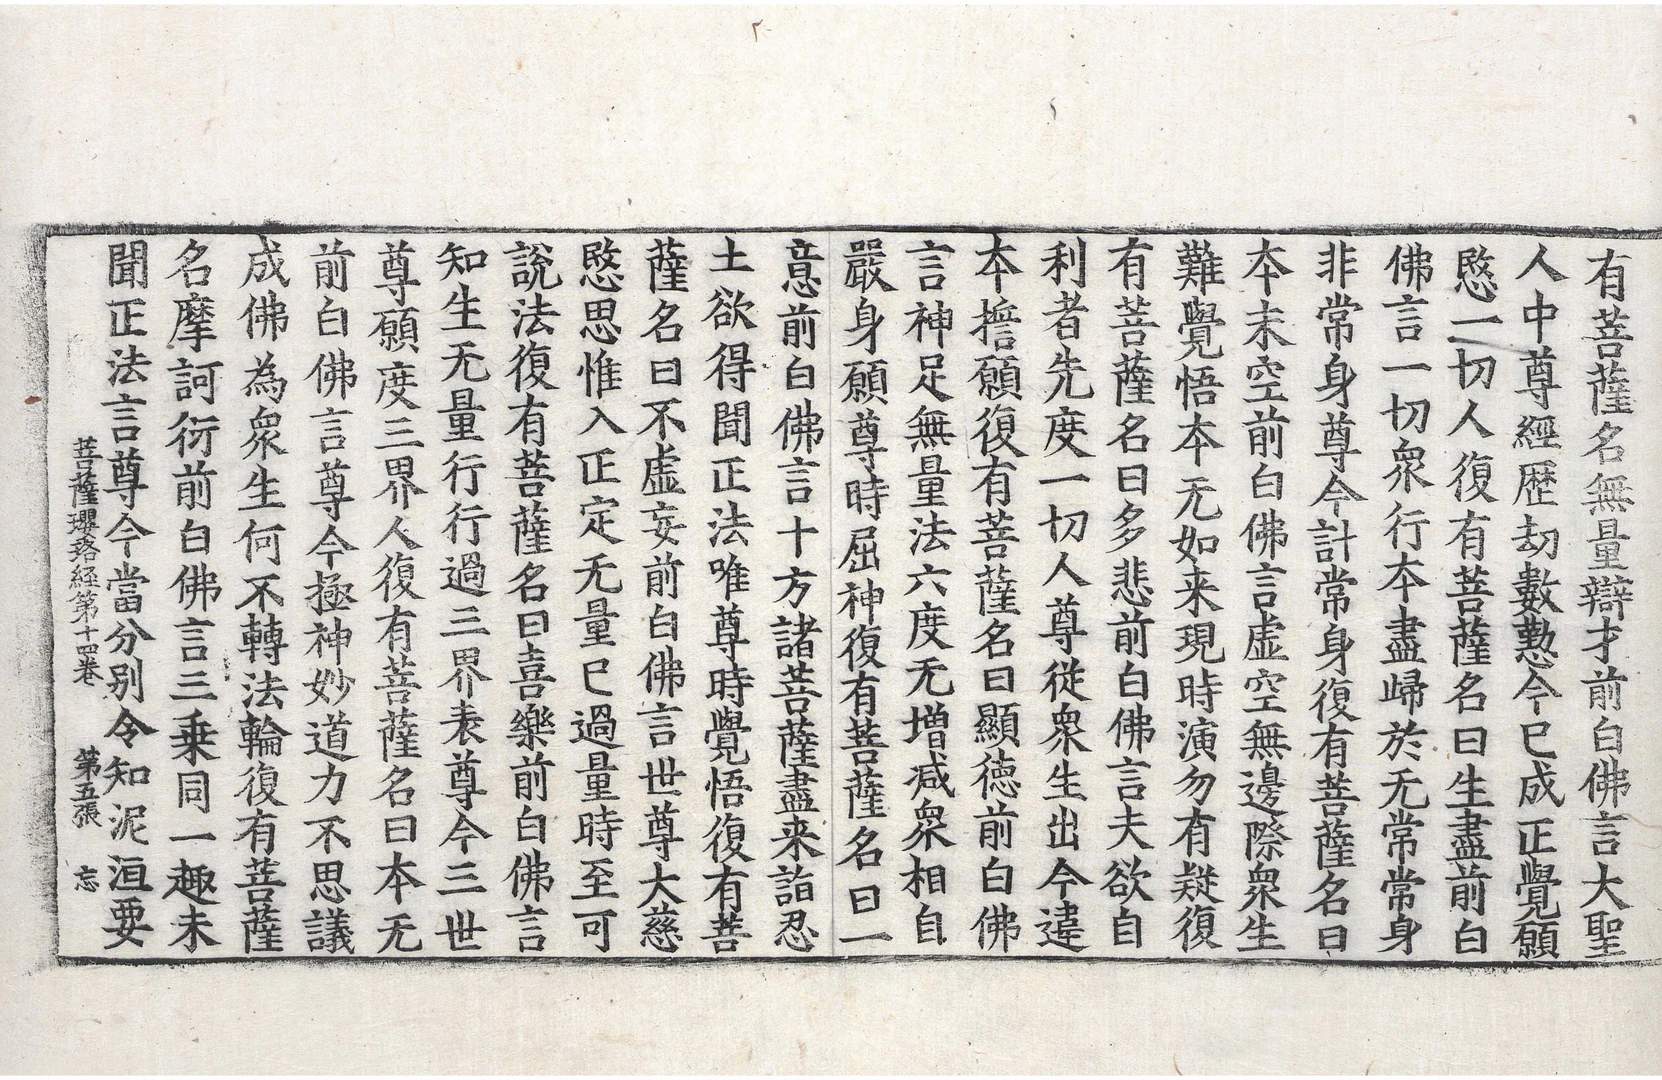 有菩薩名無量辯才前白佛言大聖
人中尊經歷劫數懃今已成正覺願
愍一切人復有菩薩名曰生盡前白
佛言一切衆行本盡歸於无常常身
非常身尊今計常身復有菩薩名曰
本末空前白佛言虛空無邊際衆生
難覺悟本无如来現時演勿有疑復
有菩薩名曰多悲前白佛言夫欲自
利者先度一切人尊從衆生出今違
本誓願復有菩薩名曰顯德前白佛
言神足無量法六度无增减衆相自
嚴身願尊時屈神復有菩薩名曰一
意前白佛言十方諸菩薩盡来詣忍
土欲得聞正法唯尊時覺悟復有菩
薩名曰不虛妄前白佛言世尊大慈
愍思惟入正定无量已過量時至可
說法復有菩薩名曰喜樂前白佛言
知生无量行行過三界表尊今三世
尊願度三界人復有菩薩名曰本无
前白佛言尊今極神妙道力不思議
成佛為衆生何不轉法輪復有菩薩
名摩訶衍前白佛言三乗同一趣未
聞正法言尊今當分別令知泥洹要
菩薩瓔珞經第十四卷 第五張 忘